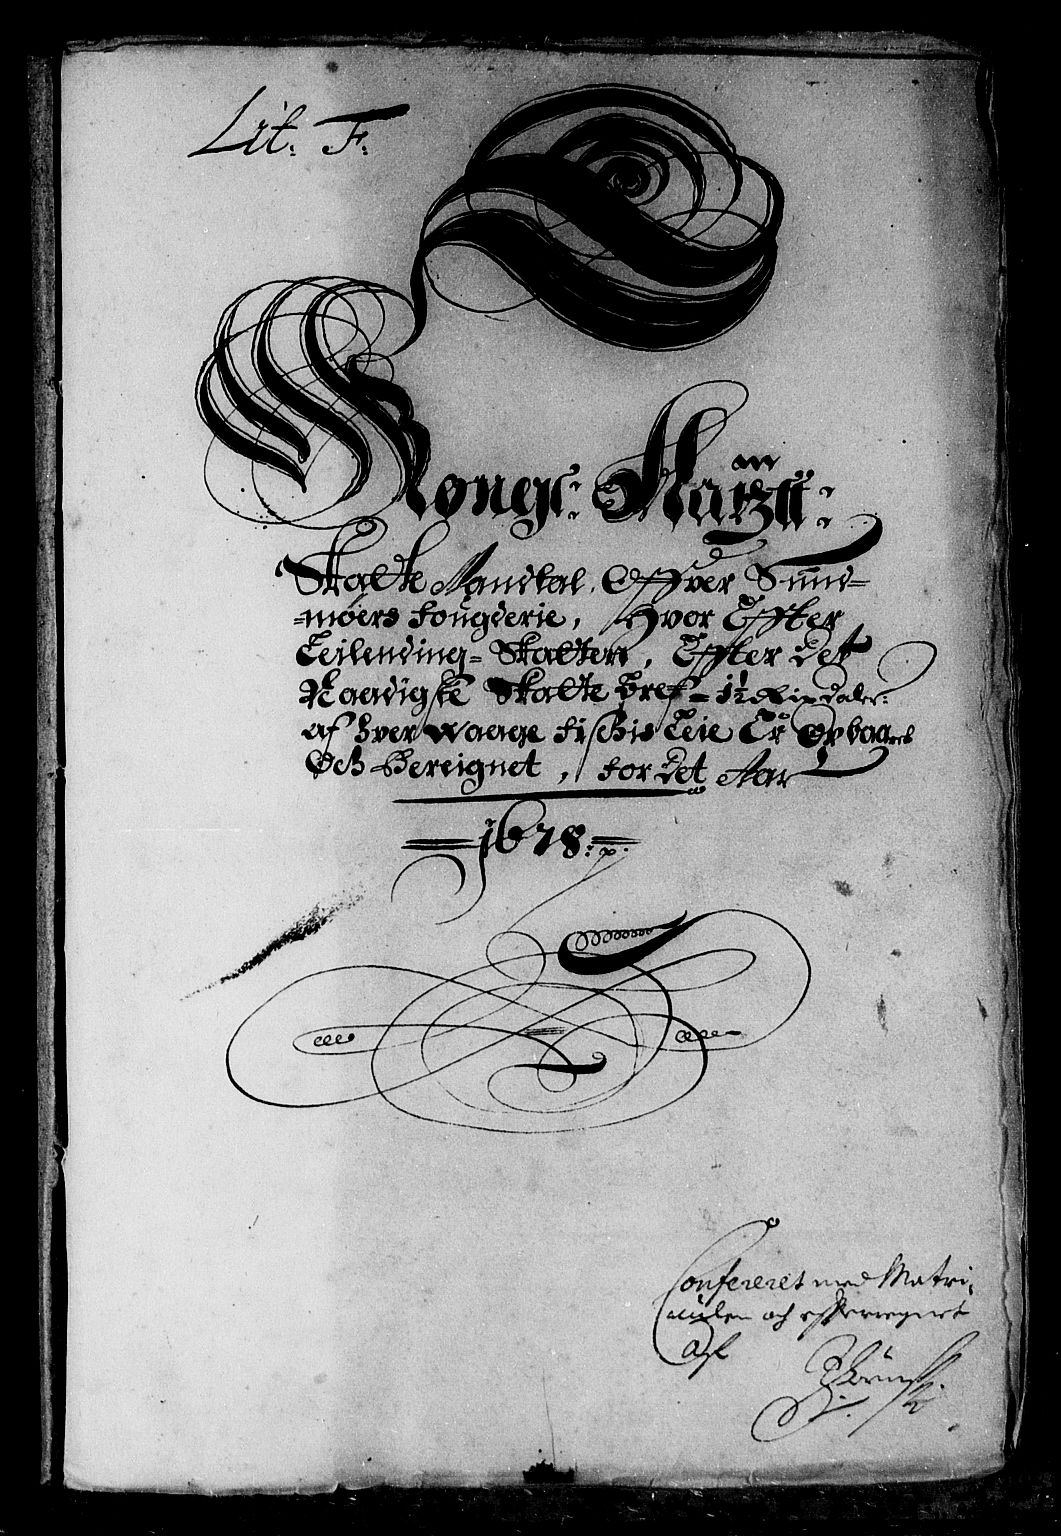 Lit: F:
Kongl: Maÿtz:
Skatte Mandtal, Offver Sund=
=møers fougderie, Hvor Effter
Leilending= Skatten, Effter det
Naadigste Skatte bref = 1½ Rixdaler:
af hver Waage fischis Leie Er Opbaaret
Och Bereignet, for det Aar
1678:
Confereret med Matri,
culen och efterregnet
Af